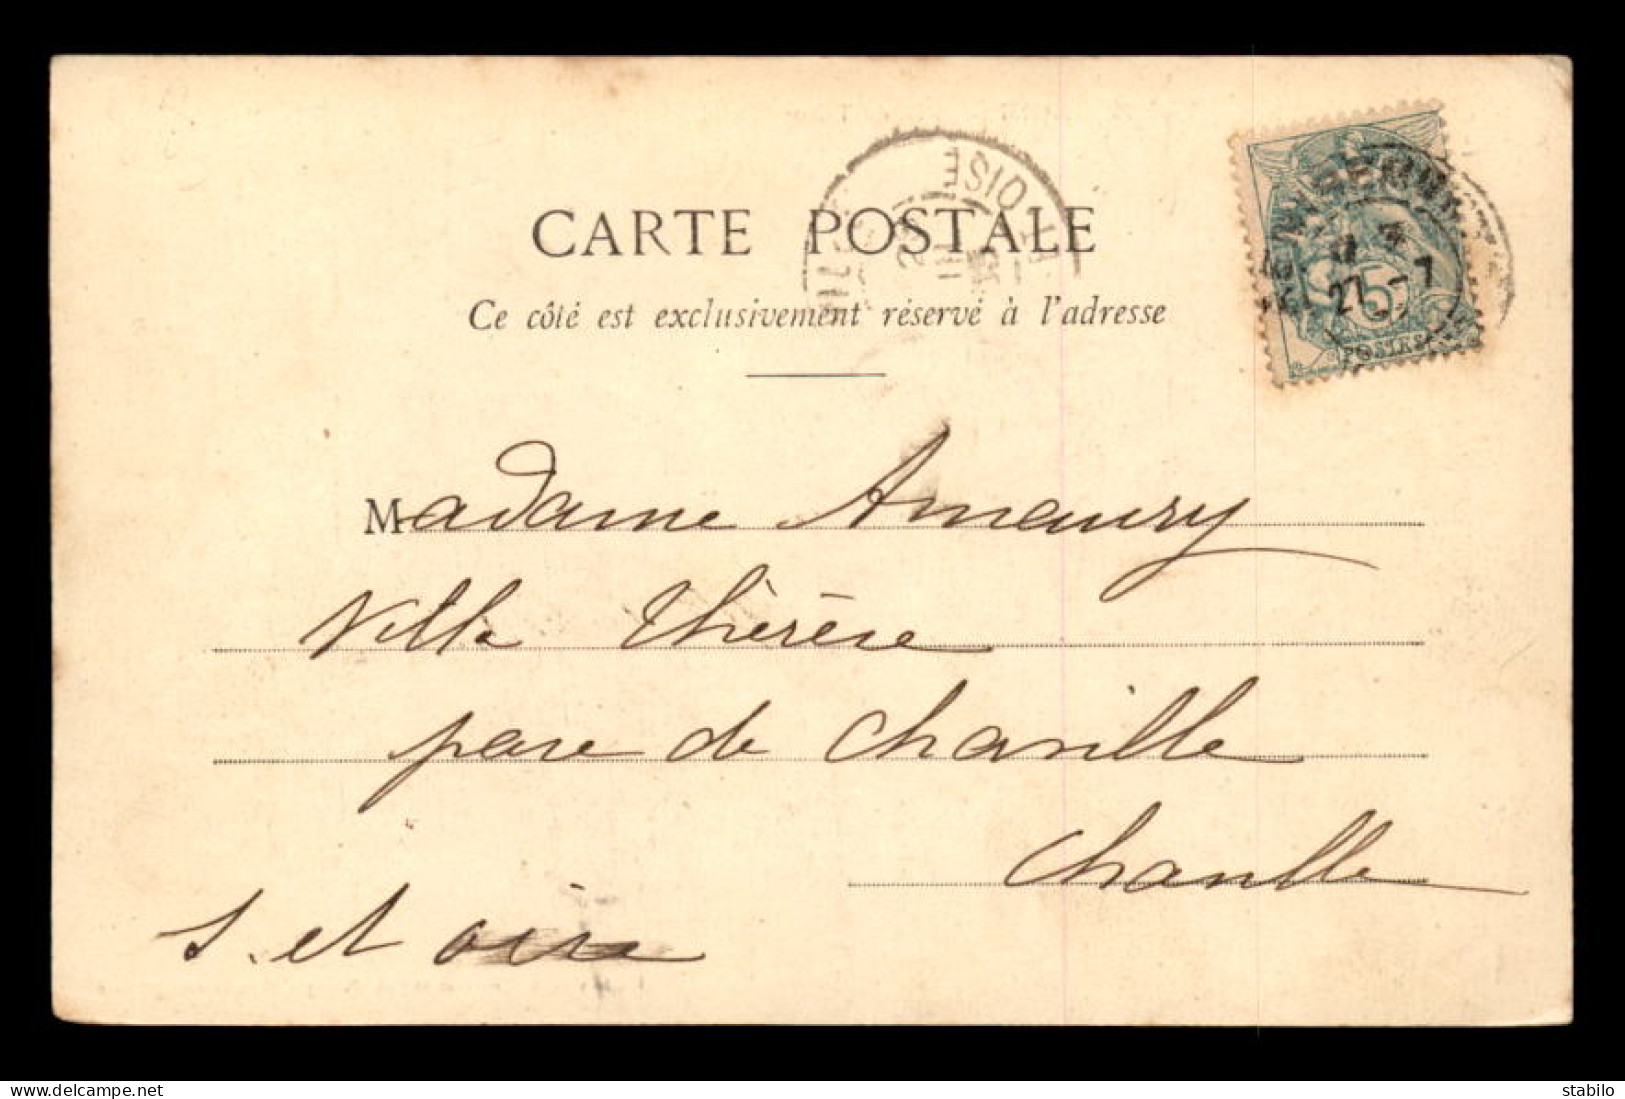 CARTE POSTALE
Ce côté est exclusivement réservé à l'adresse
Madame Amaury
Villa Thérèse
parc de Chaville
Chaville
S. et Oise
ET OISE
27 -7
5
POSTES
delcampe.net
stabilo